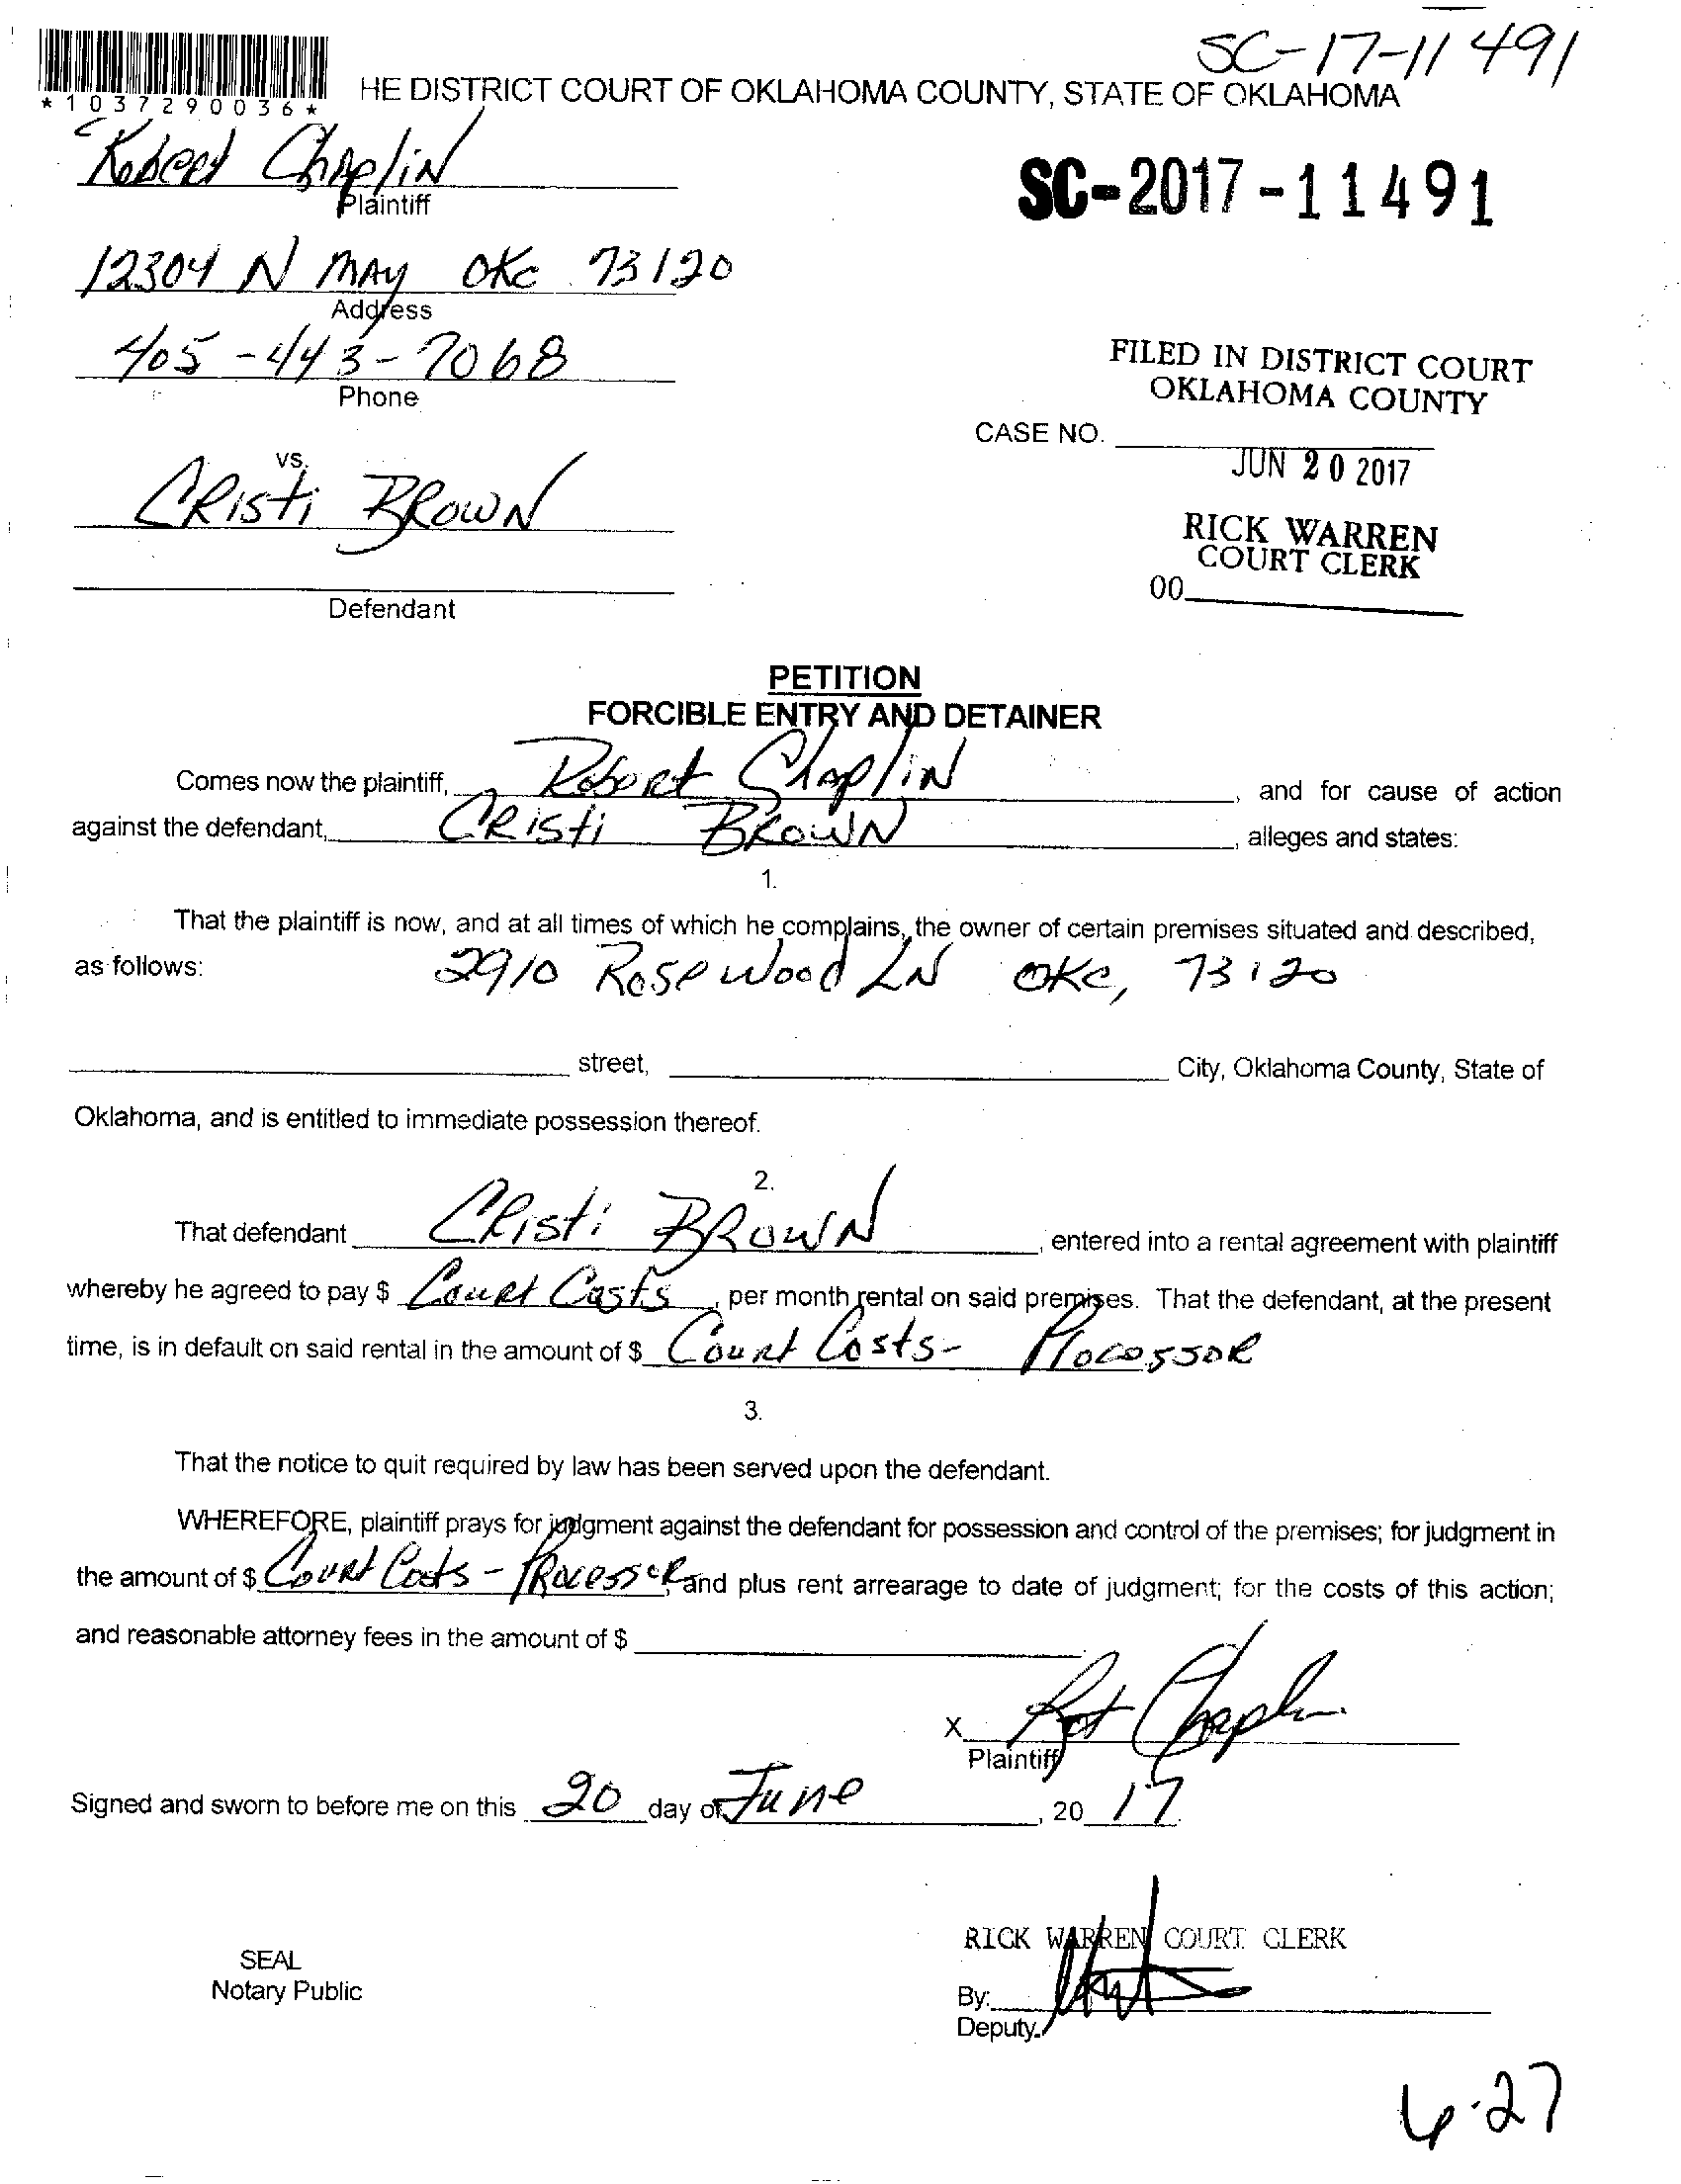 SC-17-11491
*1037290036*
HE DISTRICT COURT OF OKLAHOMA COUNTY, STATE OF OKLAHOMA
Robert Chaplin
Plaintiff
SC-2017-11491
12304 N MAY OKC 73120
Address
405-443-7068
Phone
FILED IN DISTRICT COURT
OKLAHOMA COUNTY
CASE NO.
JUN 20 2017
vs.
CRisti BROWN
RICK WARREN
COURT CLERK
00
Defendant
PETITION
FORCIBLE ENTRY AND DETAINER
Comes now the plaintiff, Robert Chaplin, and for cause of action
against the defendant, CRisti BROWN, alleges and states:
1.
That the plaintiff is now, and at all times of which he complains, the owner of certain premises situated and described,
as follows: 2910 Rosewood LN OKC, 73120
street, City, Oklahoma County, State of
Oklahoma, and is entitled to immediate possession thereof.
2.
That defendant CRisti BROWN, entered into a rental agreement with plaintiff
whereby he agreed to pay $ Court Costs, per month rental on said premises. That the defendant, at the present
time, is in default on said rental in the amount of $ Court Costs- Processor
3.
That the notice to quit required by law has been served upon the defendant.
WHEREFORE, plaintiff prays for judgment against the defendant for possession and control of the premises; for judgment in
the amount of $ Court Costs - Processor, and plus rent arrearage to date of judgment; for the costs of this action;
and reasonable attorney fees in the amount of $
X Robt Chaplin
Plaintiff
Signed and sworn to before me on this 20 day of June, 20 17.
RICK WARREN COURT CLERK
SEAL
Notary Public
By:
Deputy.
6-27